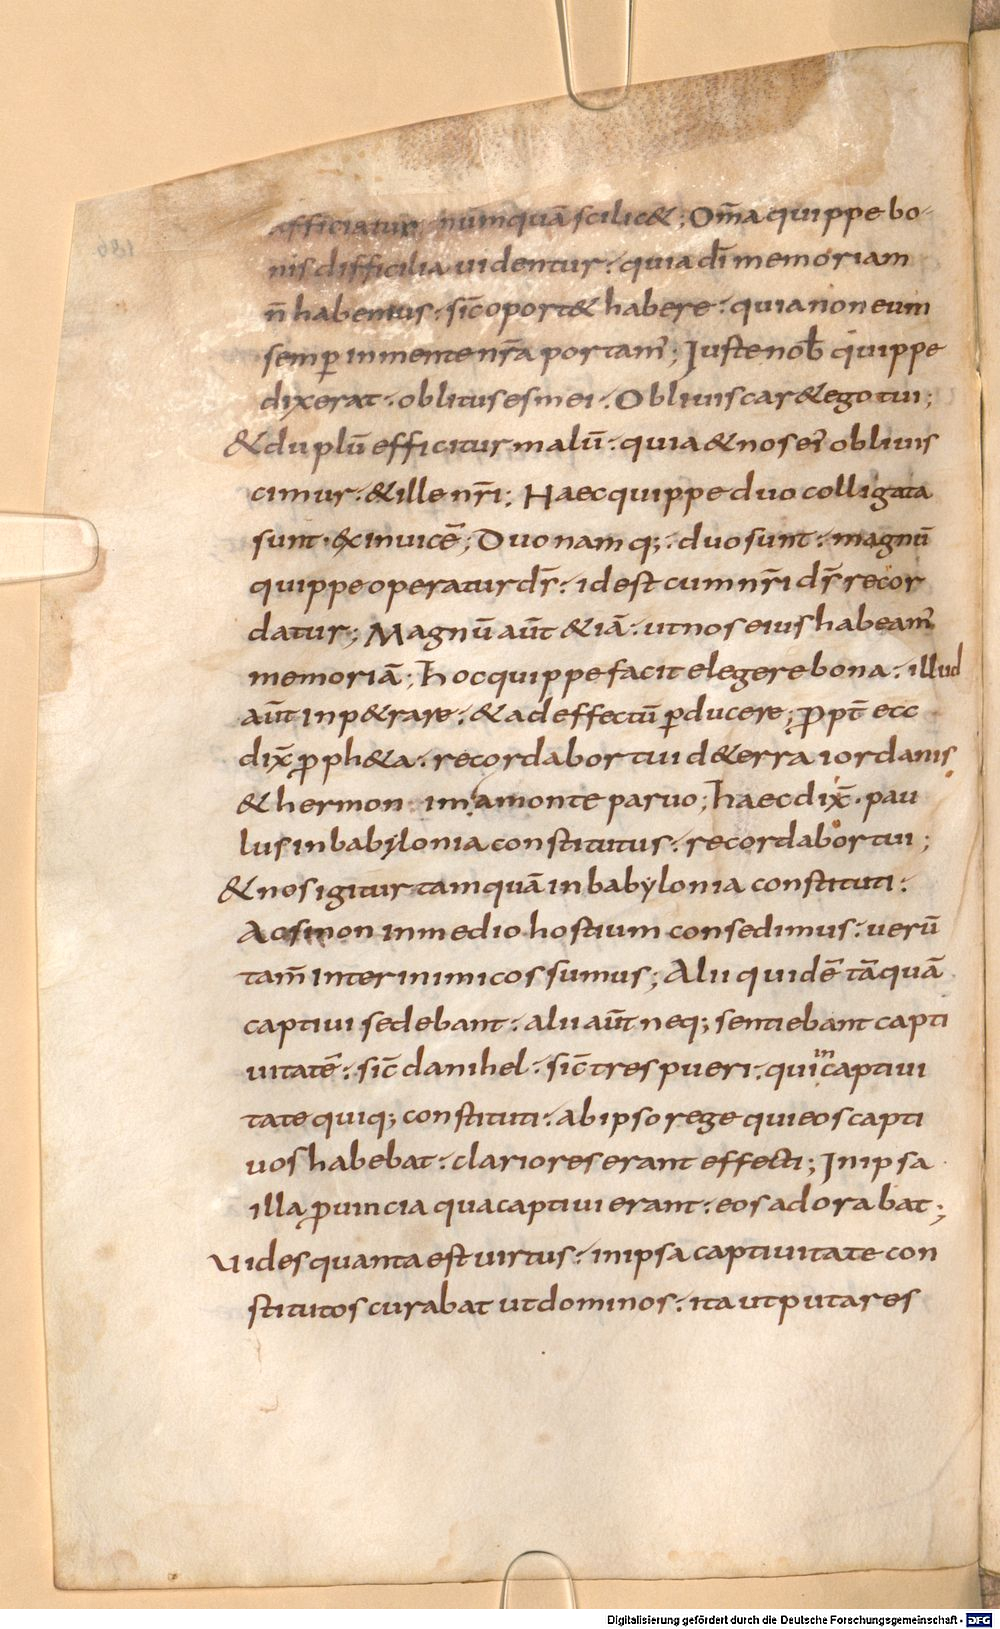 afficiatur, numquā scilic&; Om̄a quippe bo-
nis difficilia uidentur·quia dī memoriam
n̄ habemus·sic̄ oport& habere·quia non eum
semꝑ in mente nr̄a portam᾽; Iuste nob̄ quippe
dixerat·oblitus es mei·Obliuiscar & ego tui;
& duplū efficitur malū·quia & nos ei᾽ obliuis
cimur·& ille nr̄i; Haec quippe duo colligata
sunt·& inuicē; Duo namq;·duo sunt·magnū
quippe operatur dr̄·id est cum nr̄i dr̄ recor
datur; Magnū aūt & iā·ut nos eius habeam᾽
memoriā; hoc quippe facit elegere bona·illud
aūt inp&rare·& ad effectū ꝑducere; ꝓpt̄ ecc
dix̄ ꝓph&a·recordabor tui de terra iordanis
& hermon im,a monte paruo; haec dix̄·pau
lus in babylonia constitutus·recordabor tui;
& nos igitur tamquā in babylonia constituti·
Ac si non in medio hostium consedimus·uerū
tam̄ inter inimicos sumus; Alii quidē tāquā
captiui sedebant·alii aūt neq; sentiebant capti
uitatē·sic̄ danihel·sic̄ tres pueri·qui in captiui
tate quiq; constituti·ab ipso rege qui eos capti
uos habebat·clariores erant effecti; In ipsa
illa ꝓuincia qua captiui erant·eos adorabat;
Uides quanta est uirtus·in ipsa captiuitate con
stitutos curabat ut dominos·ita ut putares
Digitalisierung gefördert durch die Deutsche Forschungsgemeinschaft - DFG